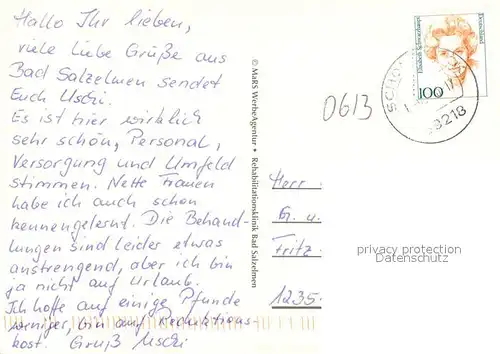 Hallo Ihr lieben,
viele liebe Grüße aus
Bad Salzelmen sendet
Euch Uschi.
Es ist hier wirklich
sehr schön, Personal,
Versorgung und Umfeld
stimmen. Nette Frauen
habe ich auch schon
kennengelernt. Die Behand-
lungen sind leider etwas
anstrengend, aber ich bin
ja nicht auf Urlaub.
Ich hoffe auf einige Pfunde
weniger, bin auf Reduktions-
kost. Gruß Uschi
© MaRS WerbeAgentur • Rehabilitationsklinik Bad Salzelmen
0613
Deutschland
Elisabeth Schwarzhaupt
100
39218
Herr
G. u.
Fritz
1235
privacy protection
Datenschutz